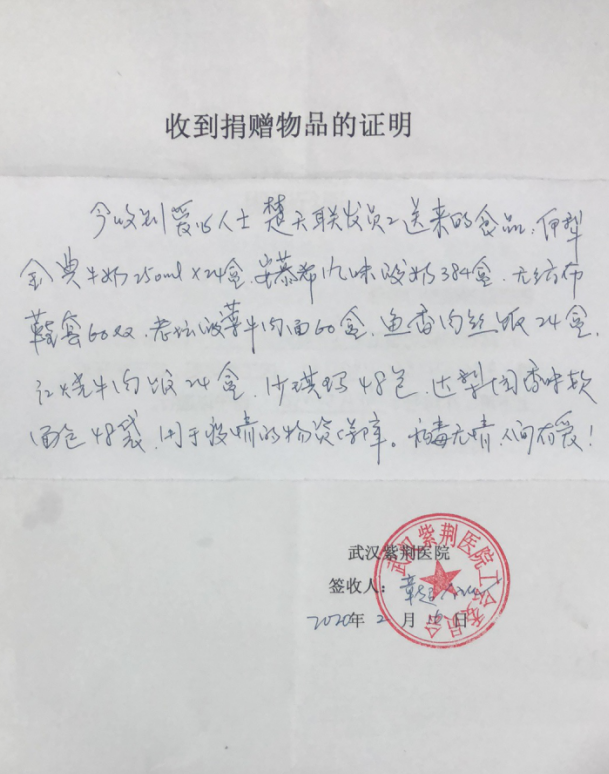 收到捐赠物品的证明
今收到爱心人士楚天联发员工送来的食品:伊利
金典牛奶250ml×24盒.安慕希风味酸奶384盒.无纺布
鞋套60双.老坛酸菜牛肉面60盒.鱼香肉丝饭24盒.
红烧牛肉饭24盒.沙琪玛48包.达利园香味软
面包48袋.用于疫情的物资。病毒无情人间有爱!
武汉紫荆医院
签收人:章
2020年2月日
武汉紫荆医院工会委员会